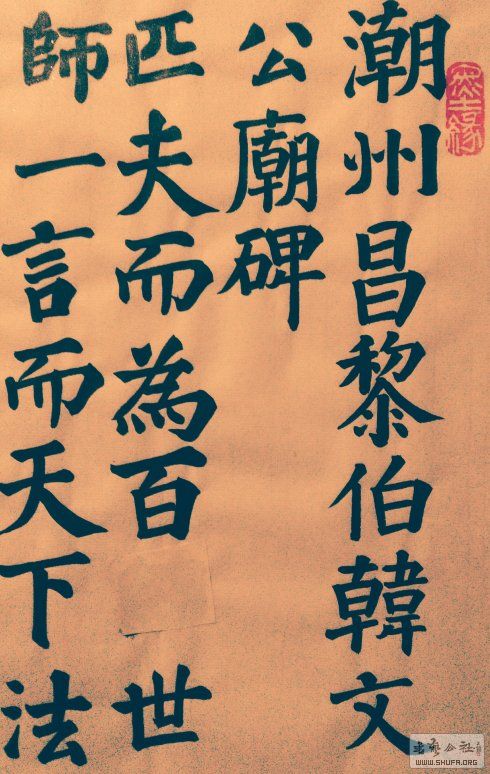 潮州昌黎伯韓文
公廟碑
匹夫而為百世
師一言而天下法
WWW.SHUFA.ORG